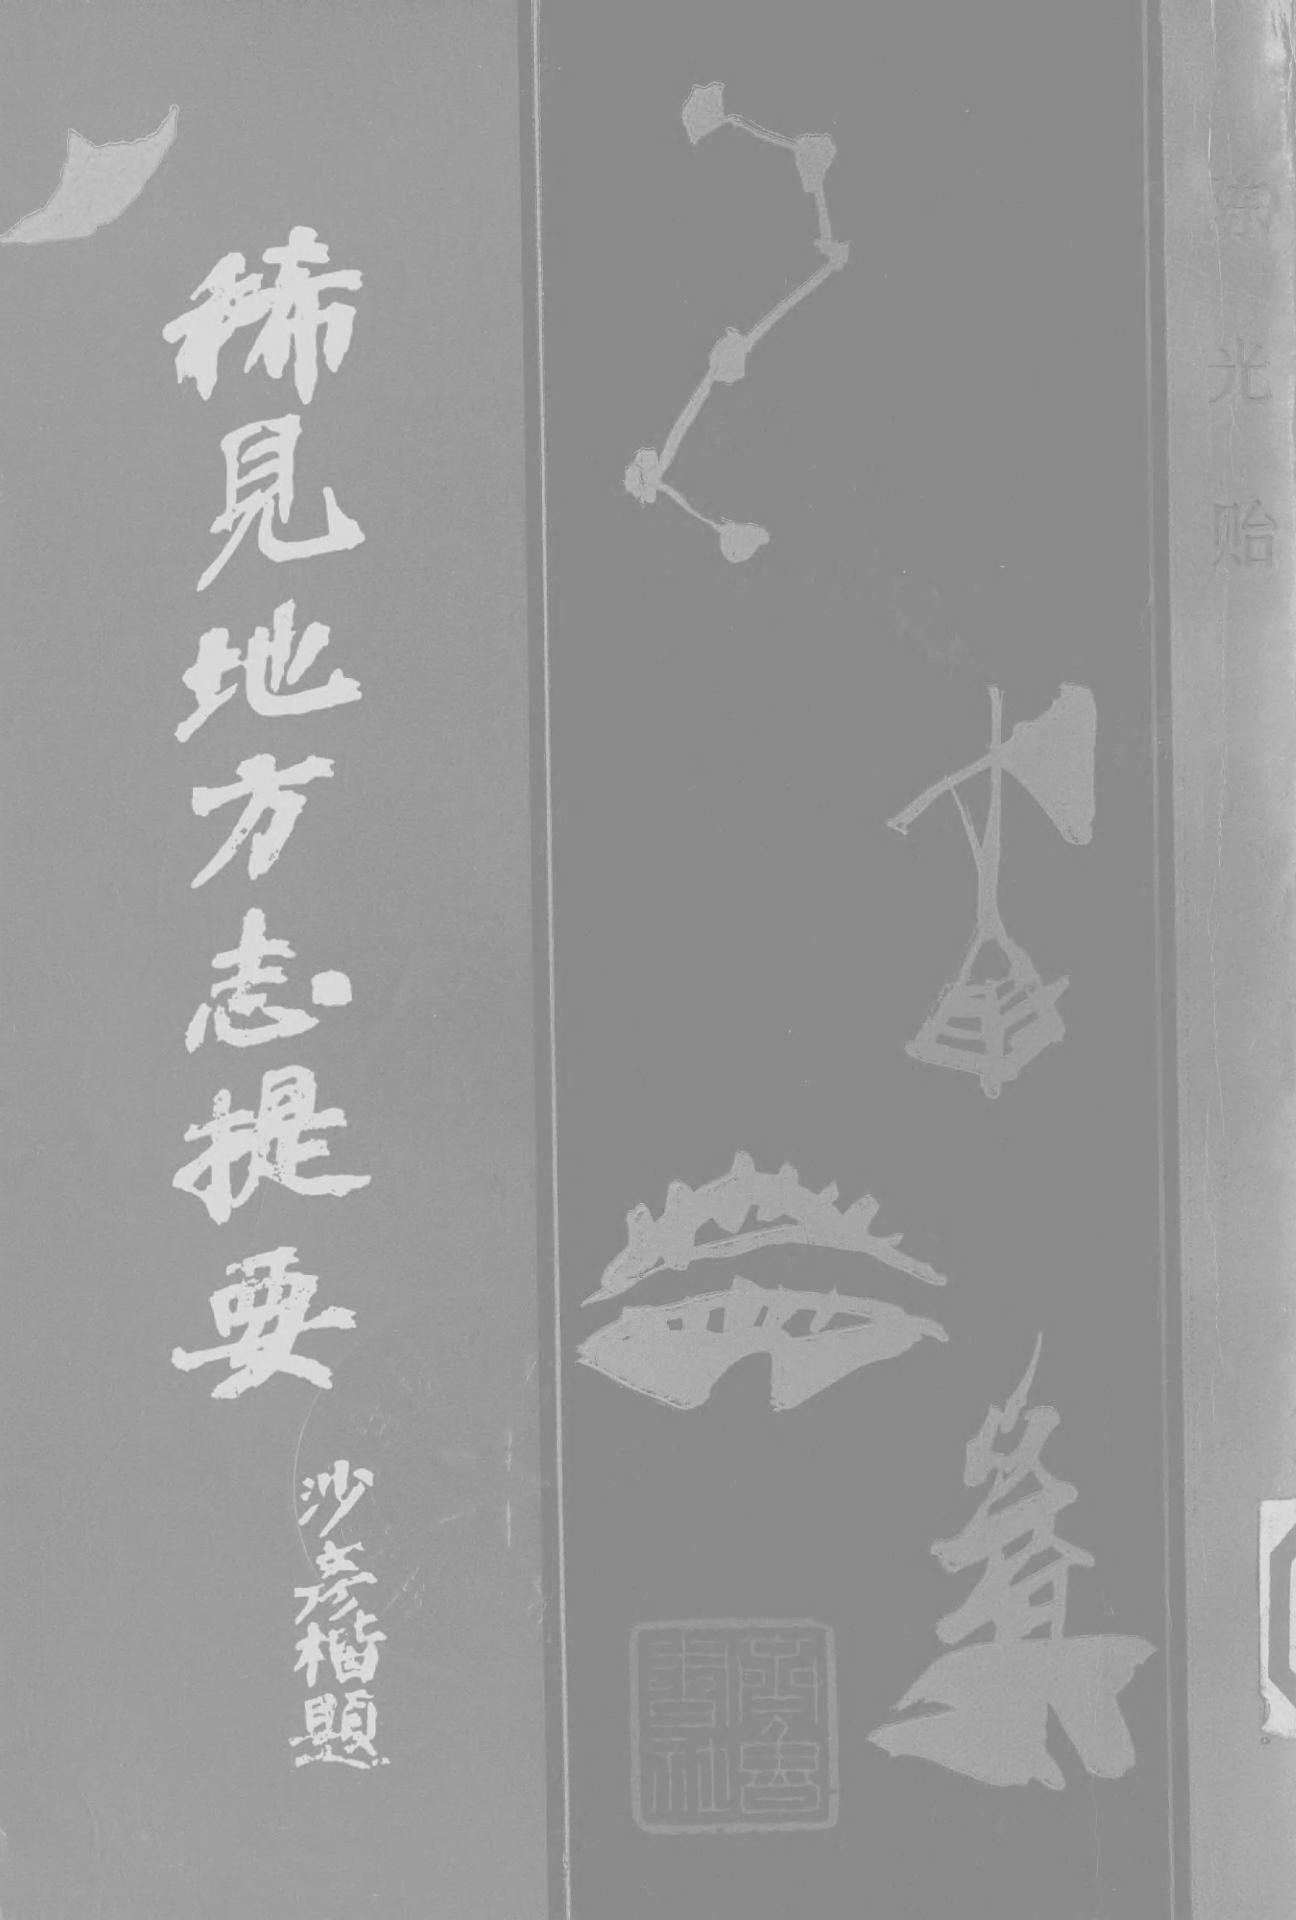 陈光贻
齊魯
書社
沙彦楷題
稀見地方志提要